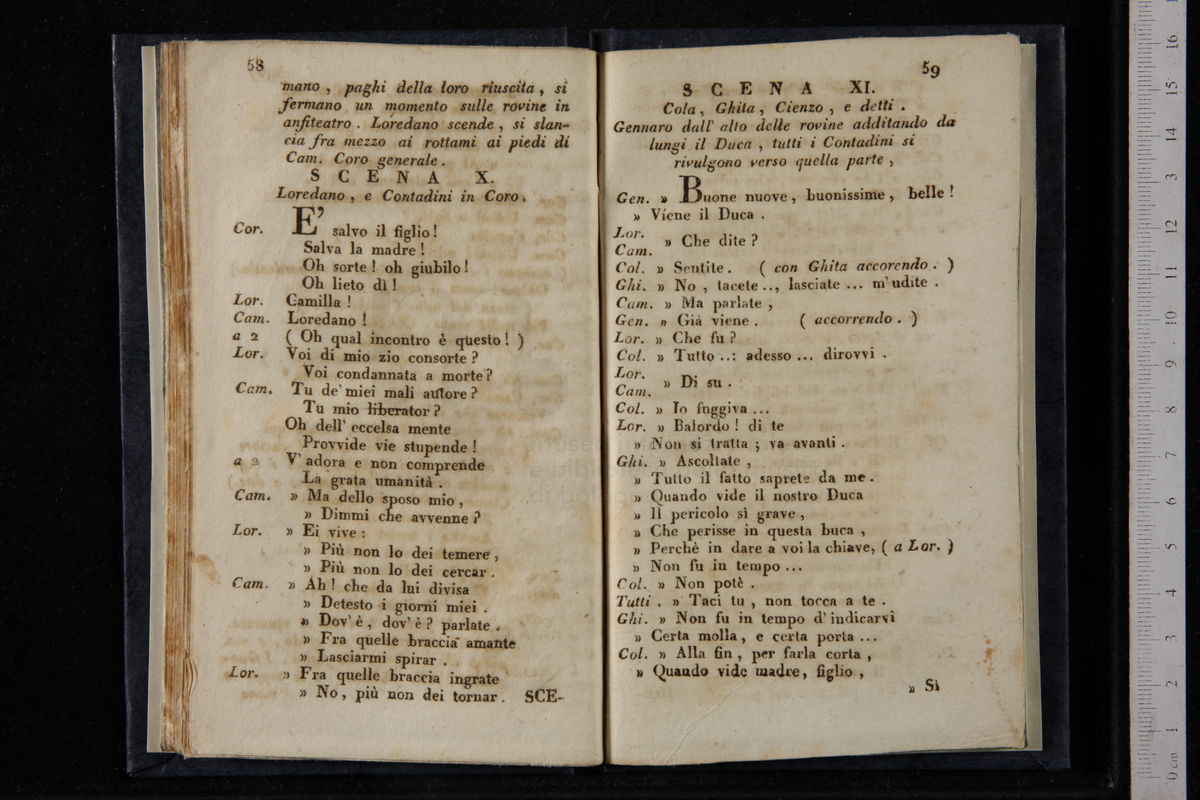 58
mano , paghi della loro riuscita , si
fermano un momento sulle rovine in
anfiteatro . Loredano scende , si slan-
cia fra mezzo ai rottami ai piedi di
Cam. Coro generale .
SCENA X.
Loredano , e Contadini in Coro .
Cor. E' salvo il figlio !
Salva la madre !
Oh sorte ! oh giubilo !
Oh lieto dì !
Lor. Camilla !
Cam. Loredano !
a 2 ( Oh qual incontro è questo ! )
Lor. Voi di mio zio consorte ?
Voi condannata a morte ?
Cam. Tu de' miei mali autore ?
Tu mio liberator ?
Oh dell' eccelsa mente
Provvide vie stupende !
a 2 V' adora e non comprende
La grata umanità .
Cam. » Ma dello sposo mio ,
» Dimmi che avvenne ?
Lor. » Ei vive :
» Più non lo dei temere ,
» Più non lo dei cercar .
Cam. » Ah ! che da lui divisa
» Detesto i giorni miei .
» Dov' è , dov' è ? parlate .
» Fra quelle braccia amante
» Lasciarmi spirar .
Lor. » Fra quelle braccia ingrate
» No , più non dei tornar . SCE-
59
SCENA XI.
Cola , Ghita , Cienzo , e detti .
Gennaro dall' alto delle rovine additando da
lungi il Duca , tutti i Contadini si
rivulgono verso quella parte ,
Gen. » Buone nuove , buonissime , belle !
» Viene il Duca .
Lor.
Cam. » Che dite ?
Col. » Sentite . ( con Ghita accorendo . )
Ghi. » No , tacete .., lasciate ... m' udite .
Cam. » Ma parlate ,
Gen. » Già viene . ( accorrendo . )
Lor. » Che fu ?
Col. » Tutto ..: adesso ... dirovvi .
Lor.
Cam. » Di su .
Col. » Io fuggiva ...
Lor. » Balordo ! di te
» Non si tratta ; va avanti .
Ghi. » Ascoltate ,
» Tutto il fatto saprete da me .
» Quando vide il nostro Duca
» Il pericolo sì grave ,
» Che perisse in questa buca ,
» Perchè in dare a voi la chiave, ( a Lor. )
» Non fu in tempo ...
Col. » Non potè .
Tutti . » Taci tu , non tocca a te .
Ghi. » Non fu in tempo d' indicarvi
» Certa molla , e certa porta ...
Col. » Alla fin , per farla corta ,
» Quando vide madre, figlio ,
» Sì